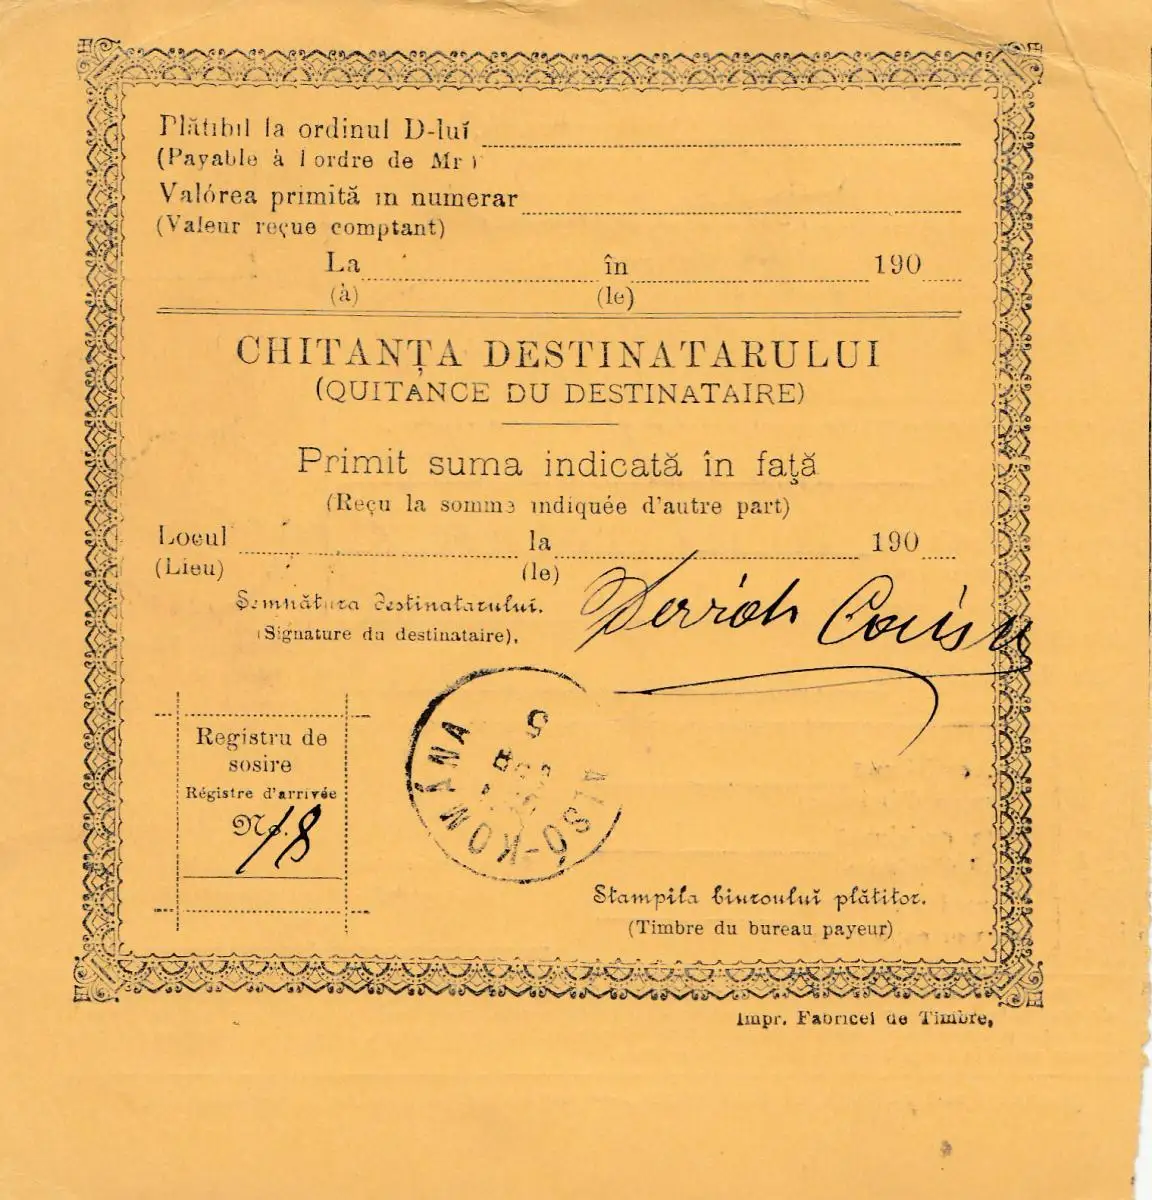 Plătibil la ordinul D-luĭ
(Payable à l ordre de Mr)
Valórea primită în numerar
(Valeur reçue comptant)
La în 190
(à) (le)
CHITANȚA DESTINATARULUI
(QUITANCE DU DESTINATAIRE)
Primit suma indicată în față
(Reçu la somme indiquée d'autre part)
Locul la 190
(Lieu) (le)
Semnătura destinatarului.
(Signature du destinataire),
Registru de
sosire
Régistre d'arrivée
No. 18
ALSÓ-KOMANA
5
Stampila biuroului plătitor.
(Timbre du bureau payeur)
Impr. Fabricei de Timbre,